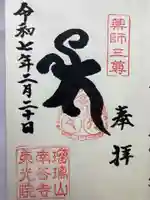 奉拝
薬師三尊
令和七年二月二十日
瑠璃山
南谷寺
東光院